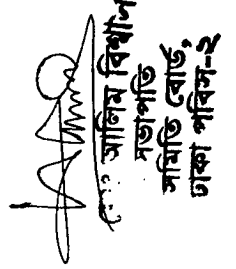 আলিম বিশ্বাস
সভাপতি
সমিতি বোর্ড,
ঢাকা পবিস-২